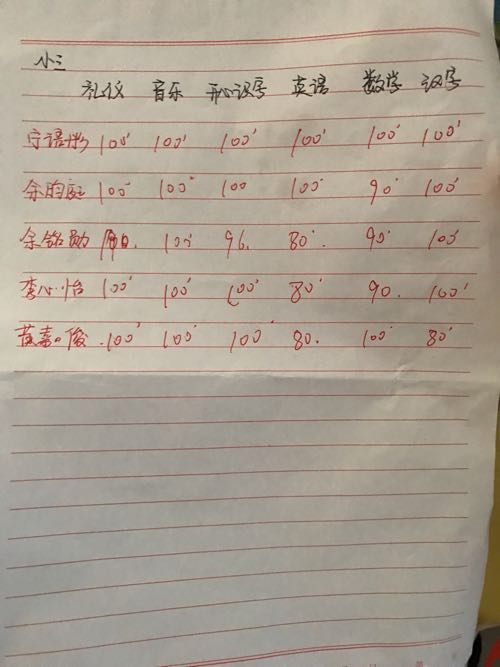 小三
礼仪 音乐 开心识字 英语 数学 汉字
宁语彤 100' 100' 100' 100' 100' 100'
余昀庭 100' 100' 100 100' 90' 100'
余铭勋 100' 96. 80' 90' 100'
李心怡 100' 100' 100' 80' 90. 100'
黄嘉俊 100' 100' 100' 80. 100' 80'